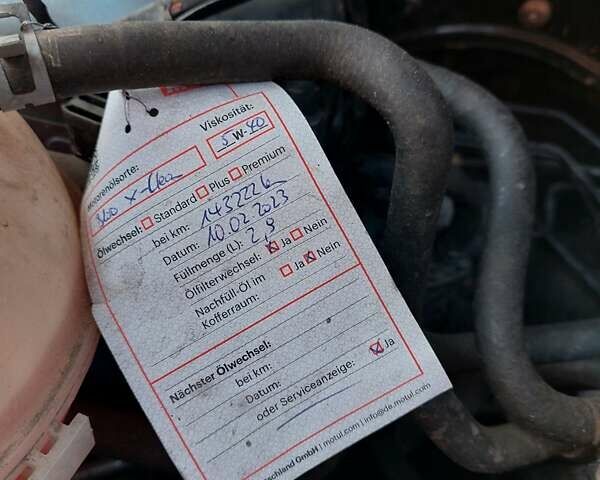 Viskosität:
Motorenölsorte:
5 W-40
8100 X-Clean
Ölwechsel: Standard Plus Premium
bei km: 143222
Datum: 10.02.2023
Füllmenge (L): 2,8
Ölfilterwechsel: Ja Nein
Nachfüll-Öl im
Kofferraum: Ja Nein
Nächster Ölwechsel:
bei km:
Datum:
oder Serviceanzeige: Ja
GmbH | motul.com | info@de.motul.com